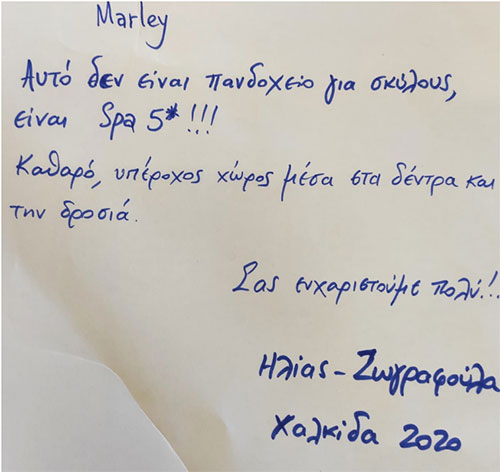 Marley
Αυτό δεν είναι πανδοχείο για σκύλους,
είναι Spa 5* !!!
Καθαρό, υπέροχος χώρος μέσα στα δέντρα και
την δροσιά.
Σας ευχαριστούμε πολύ!!
Ηλίας - Ζωγραφούλα
Χαλκίδα 2020